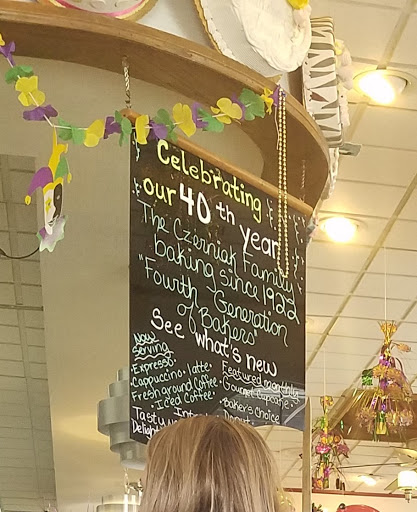 Celebrating
our 40th year
The Czerniak Family
baking since 1922
"Fourth Generation
of Bakers"
See what's new
Now
Serving
•Expresso•
Cappuccino•latte•
Fresh ground Coffee•
•Iced Coffee•
Tasty
Delight
Featured monthly
Gourmet Cupcake•
•Baker's Choice
Donut